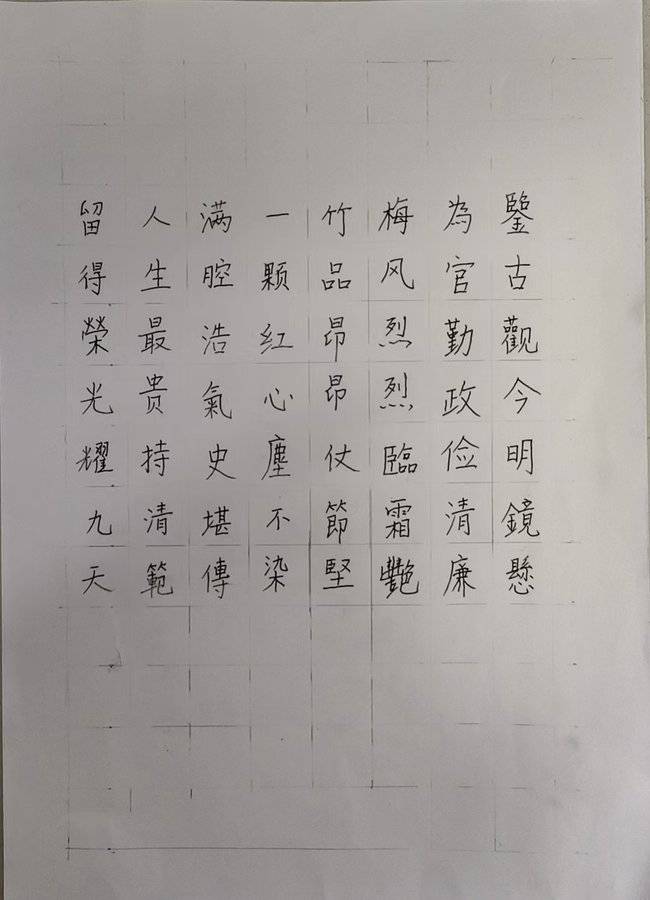 鑒古觀今明鏡懸
為官勤政俭清廉
梅风烈烈臨霜艷
竹品昂昂仗節堅
一颗红心塵不染
满腔浩氣史堪傳
人生最贵持清範
留得榮光耀九天